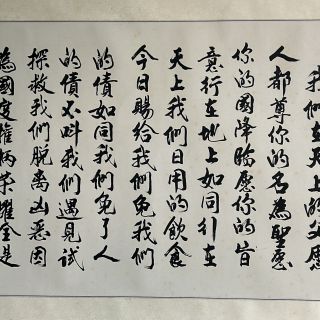 我們在天上的父愿
人都尊你的名為聖愿
你的國降臨愿你的旨
意行在地上如同行在
天上我們日用的飲食
今日賜給我們免我們
的債如同我們免了人
的債不叫我們遇見試
探救我們脫离凶惡因
為國度權柄榮耀全是